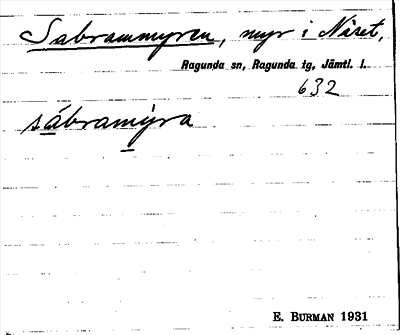 Sabrammyren, myr i Näset,
Ragunda sn, Ragunda tg, Jämtl. l.
632
sábramýra
E. BURMAN 1931